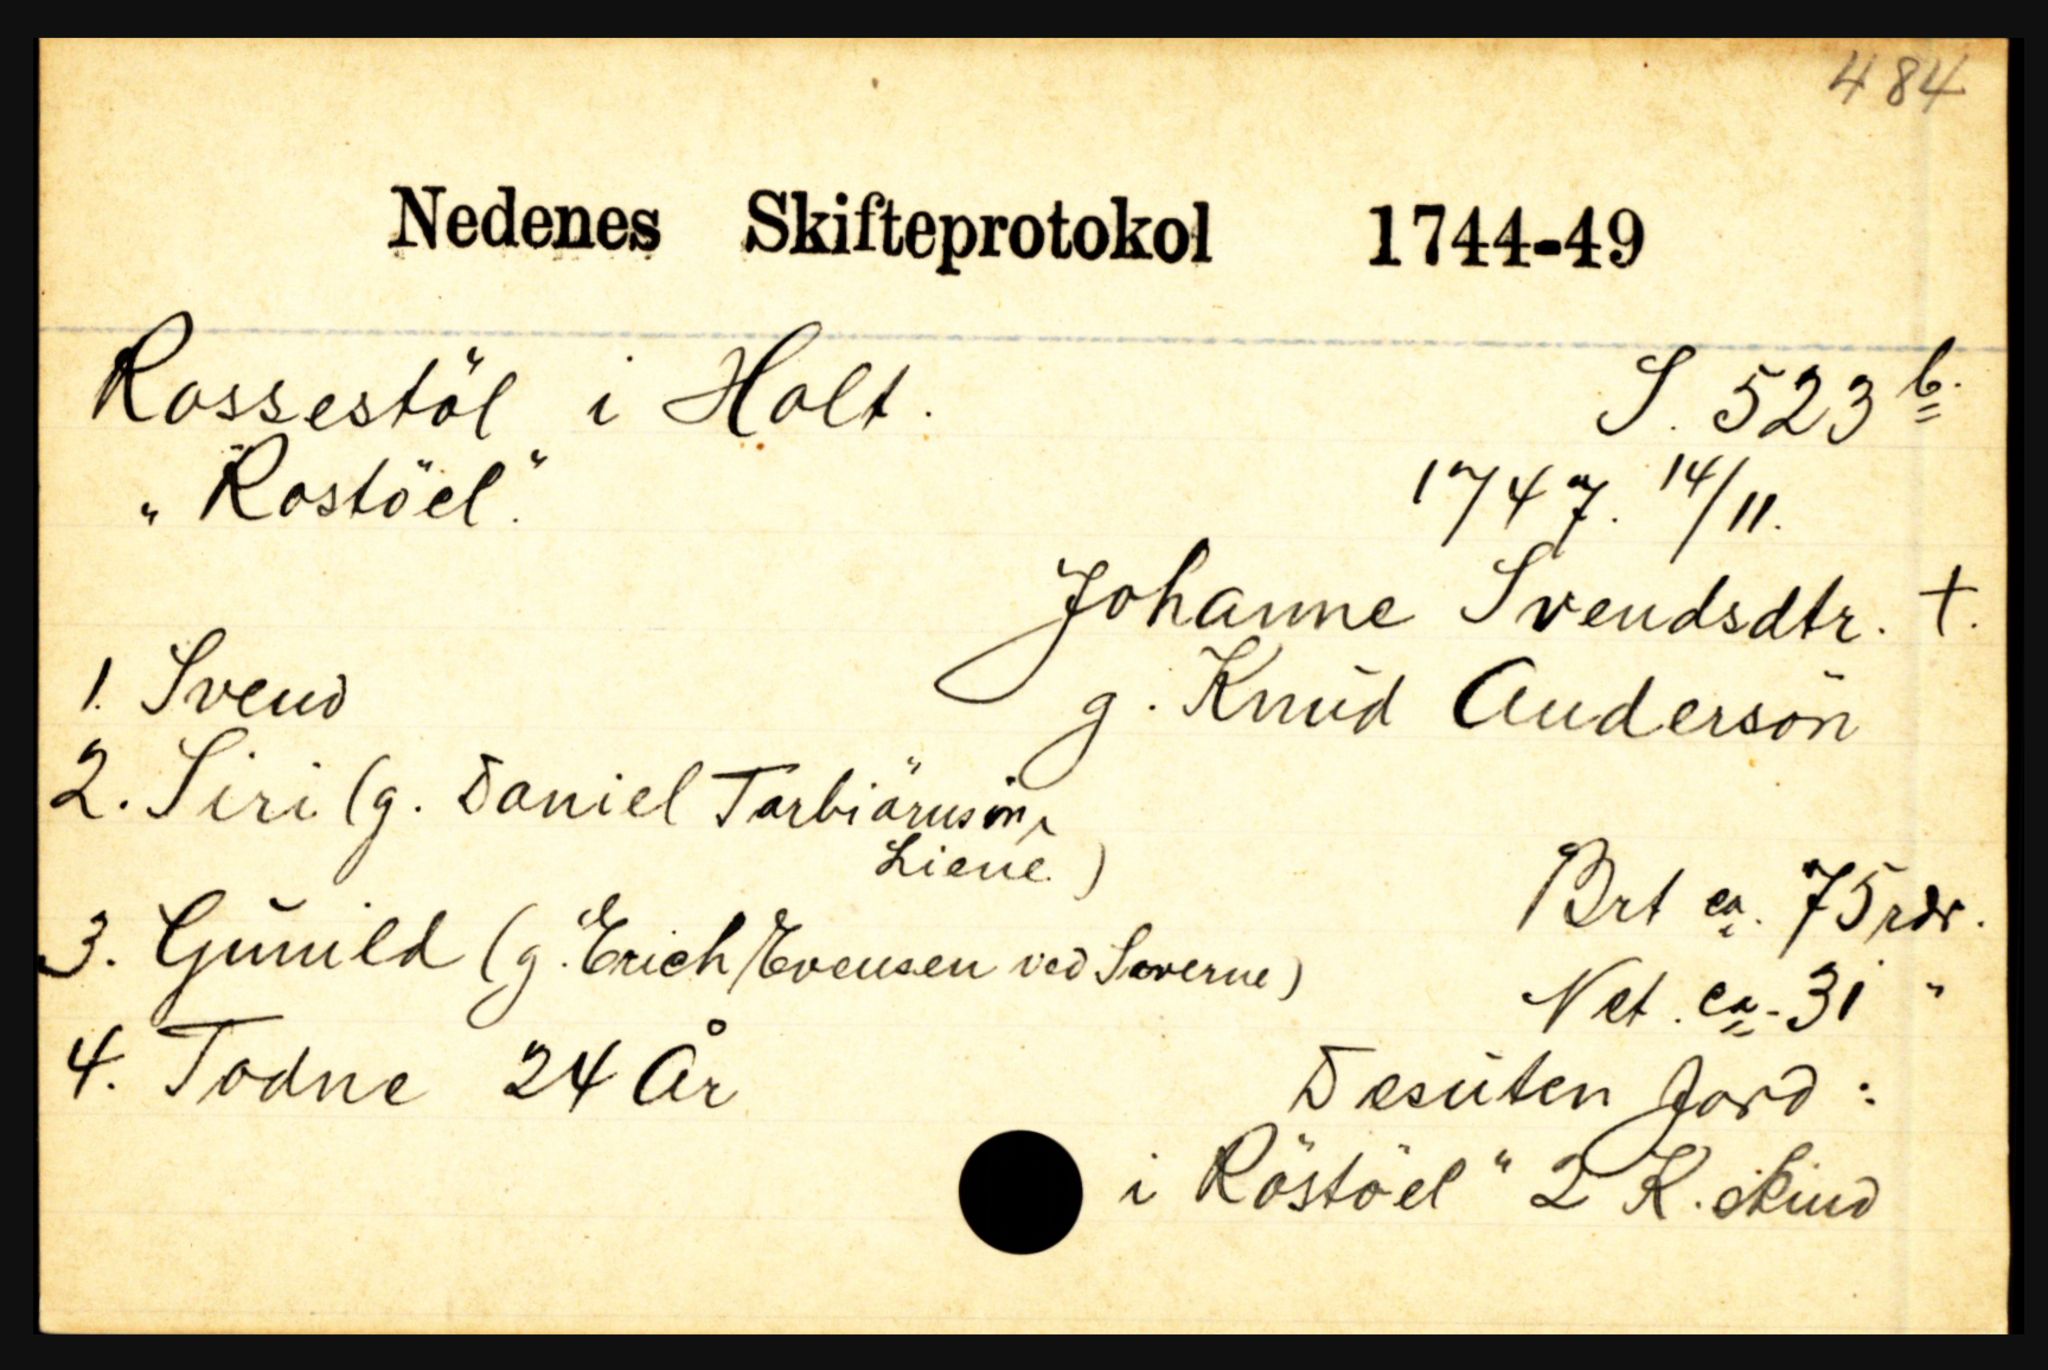 484
Nedenes Skifteprotokol 1744-49
Rossestöl i Holt. S. 523 b.
"Rostöel". 1747. 14/11.
Johanne Svendsdtr. †.
1. Svend g. Knud Andersön
2. Siri (g. Daniel Torbiörnsön,
Liene)
Brt ca. 75 rdr.
3. Gunild (g. Erich Evensen ved Saverne)
Net. ca. 31 "
4. Todne 24 År Desuten Jord:
i Röstöel" 2 K. skind